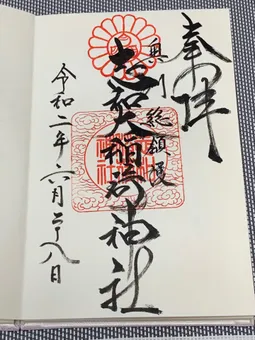 奉拝
奥州総鎮護
志和大稲荷神社
令和二年六月二十八日